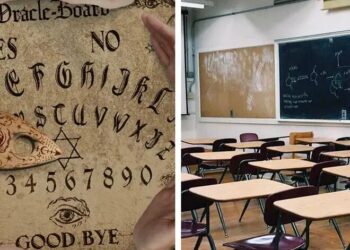 Oracle-Board
ES NO
DEFGHIJKL
RSTUVWXY
34567890
GOOD BYE